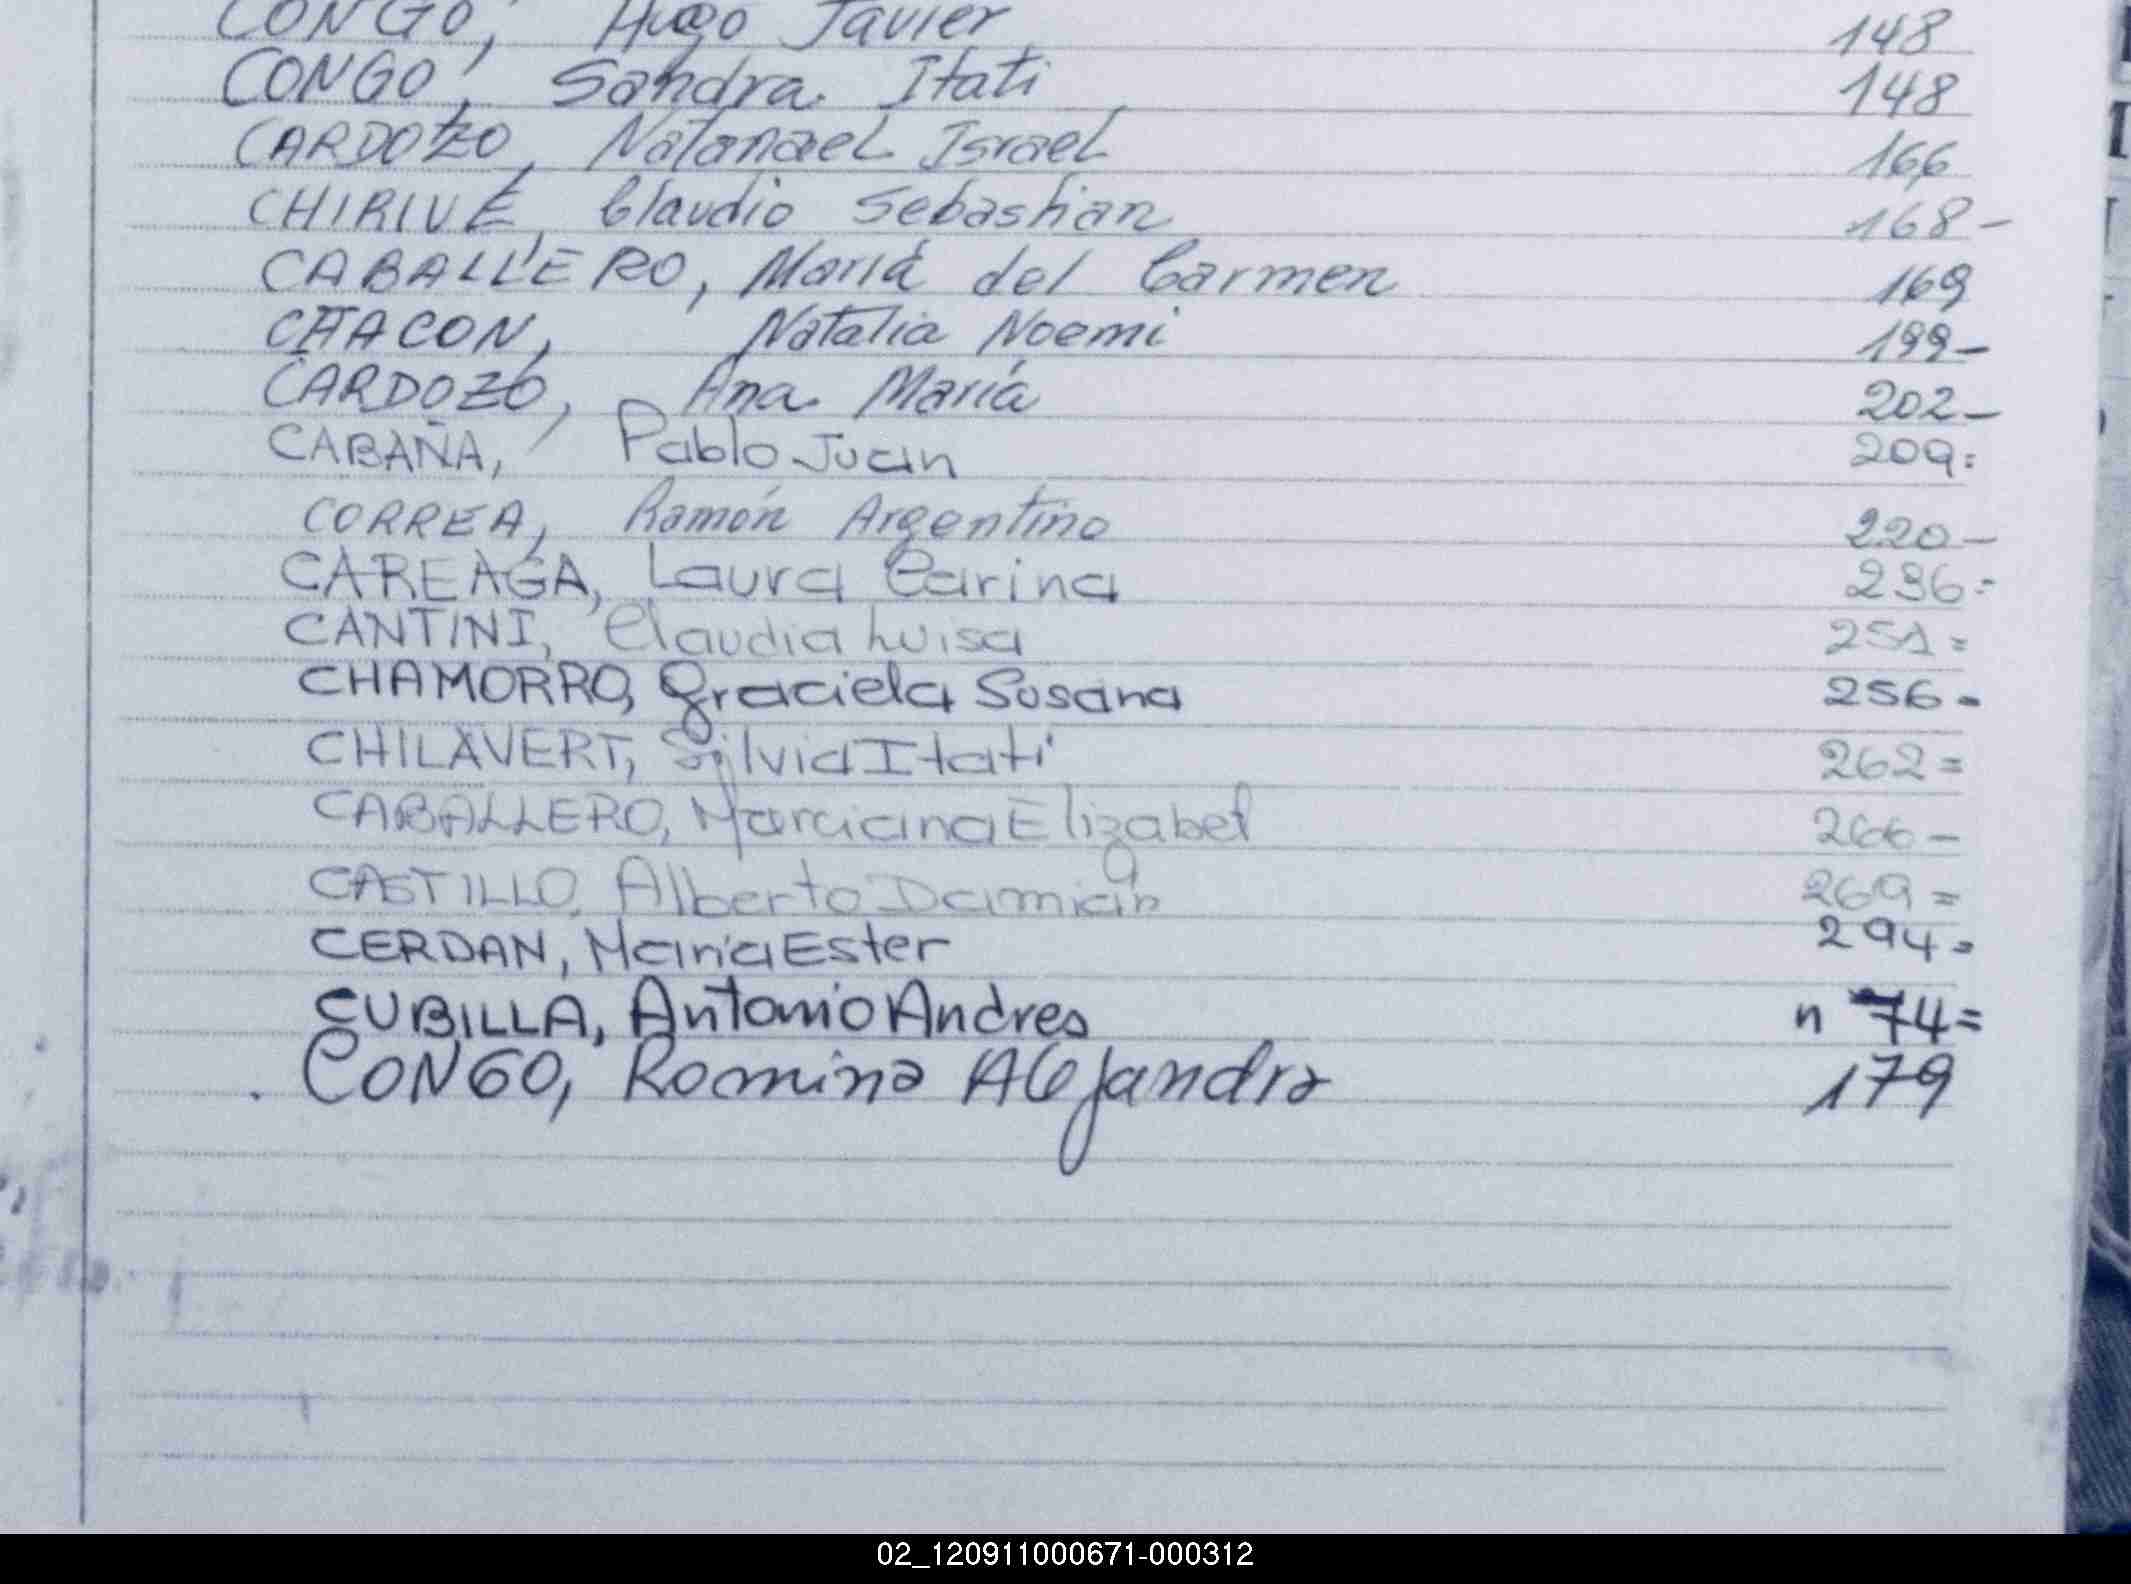 CONGO, Hugo Javier 148
CONGO, Sandra Itati 148
CARDOZO, Natanael Israel 166
CHIRIVÉ, Claudio Sebastian 168-
CABALLERO, María del Carmen 169
CHACON, Natalia Noemi 199-
CARDOZO, Ana María 202-
CABAÑA, Pablo Juan 209=
CORREA, Ramón Argentino 220-
CAREAGA, Laura Carina 236=
CANTINI, Claudia Luisa 251=
CHAMORRO, Graciela Susana 256=
CHILAVERT, Silvia Itati 262=
CABALLERO, Marciana Elizabet 266-
CASTILLO, Alberto Damián 269=
CERDAN, María Ester 294=
CUBILLA, Antonio Andres n 74=
CONGO, Romina Alejandra 179
02_120911000671-000312